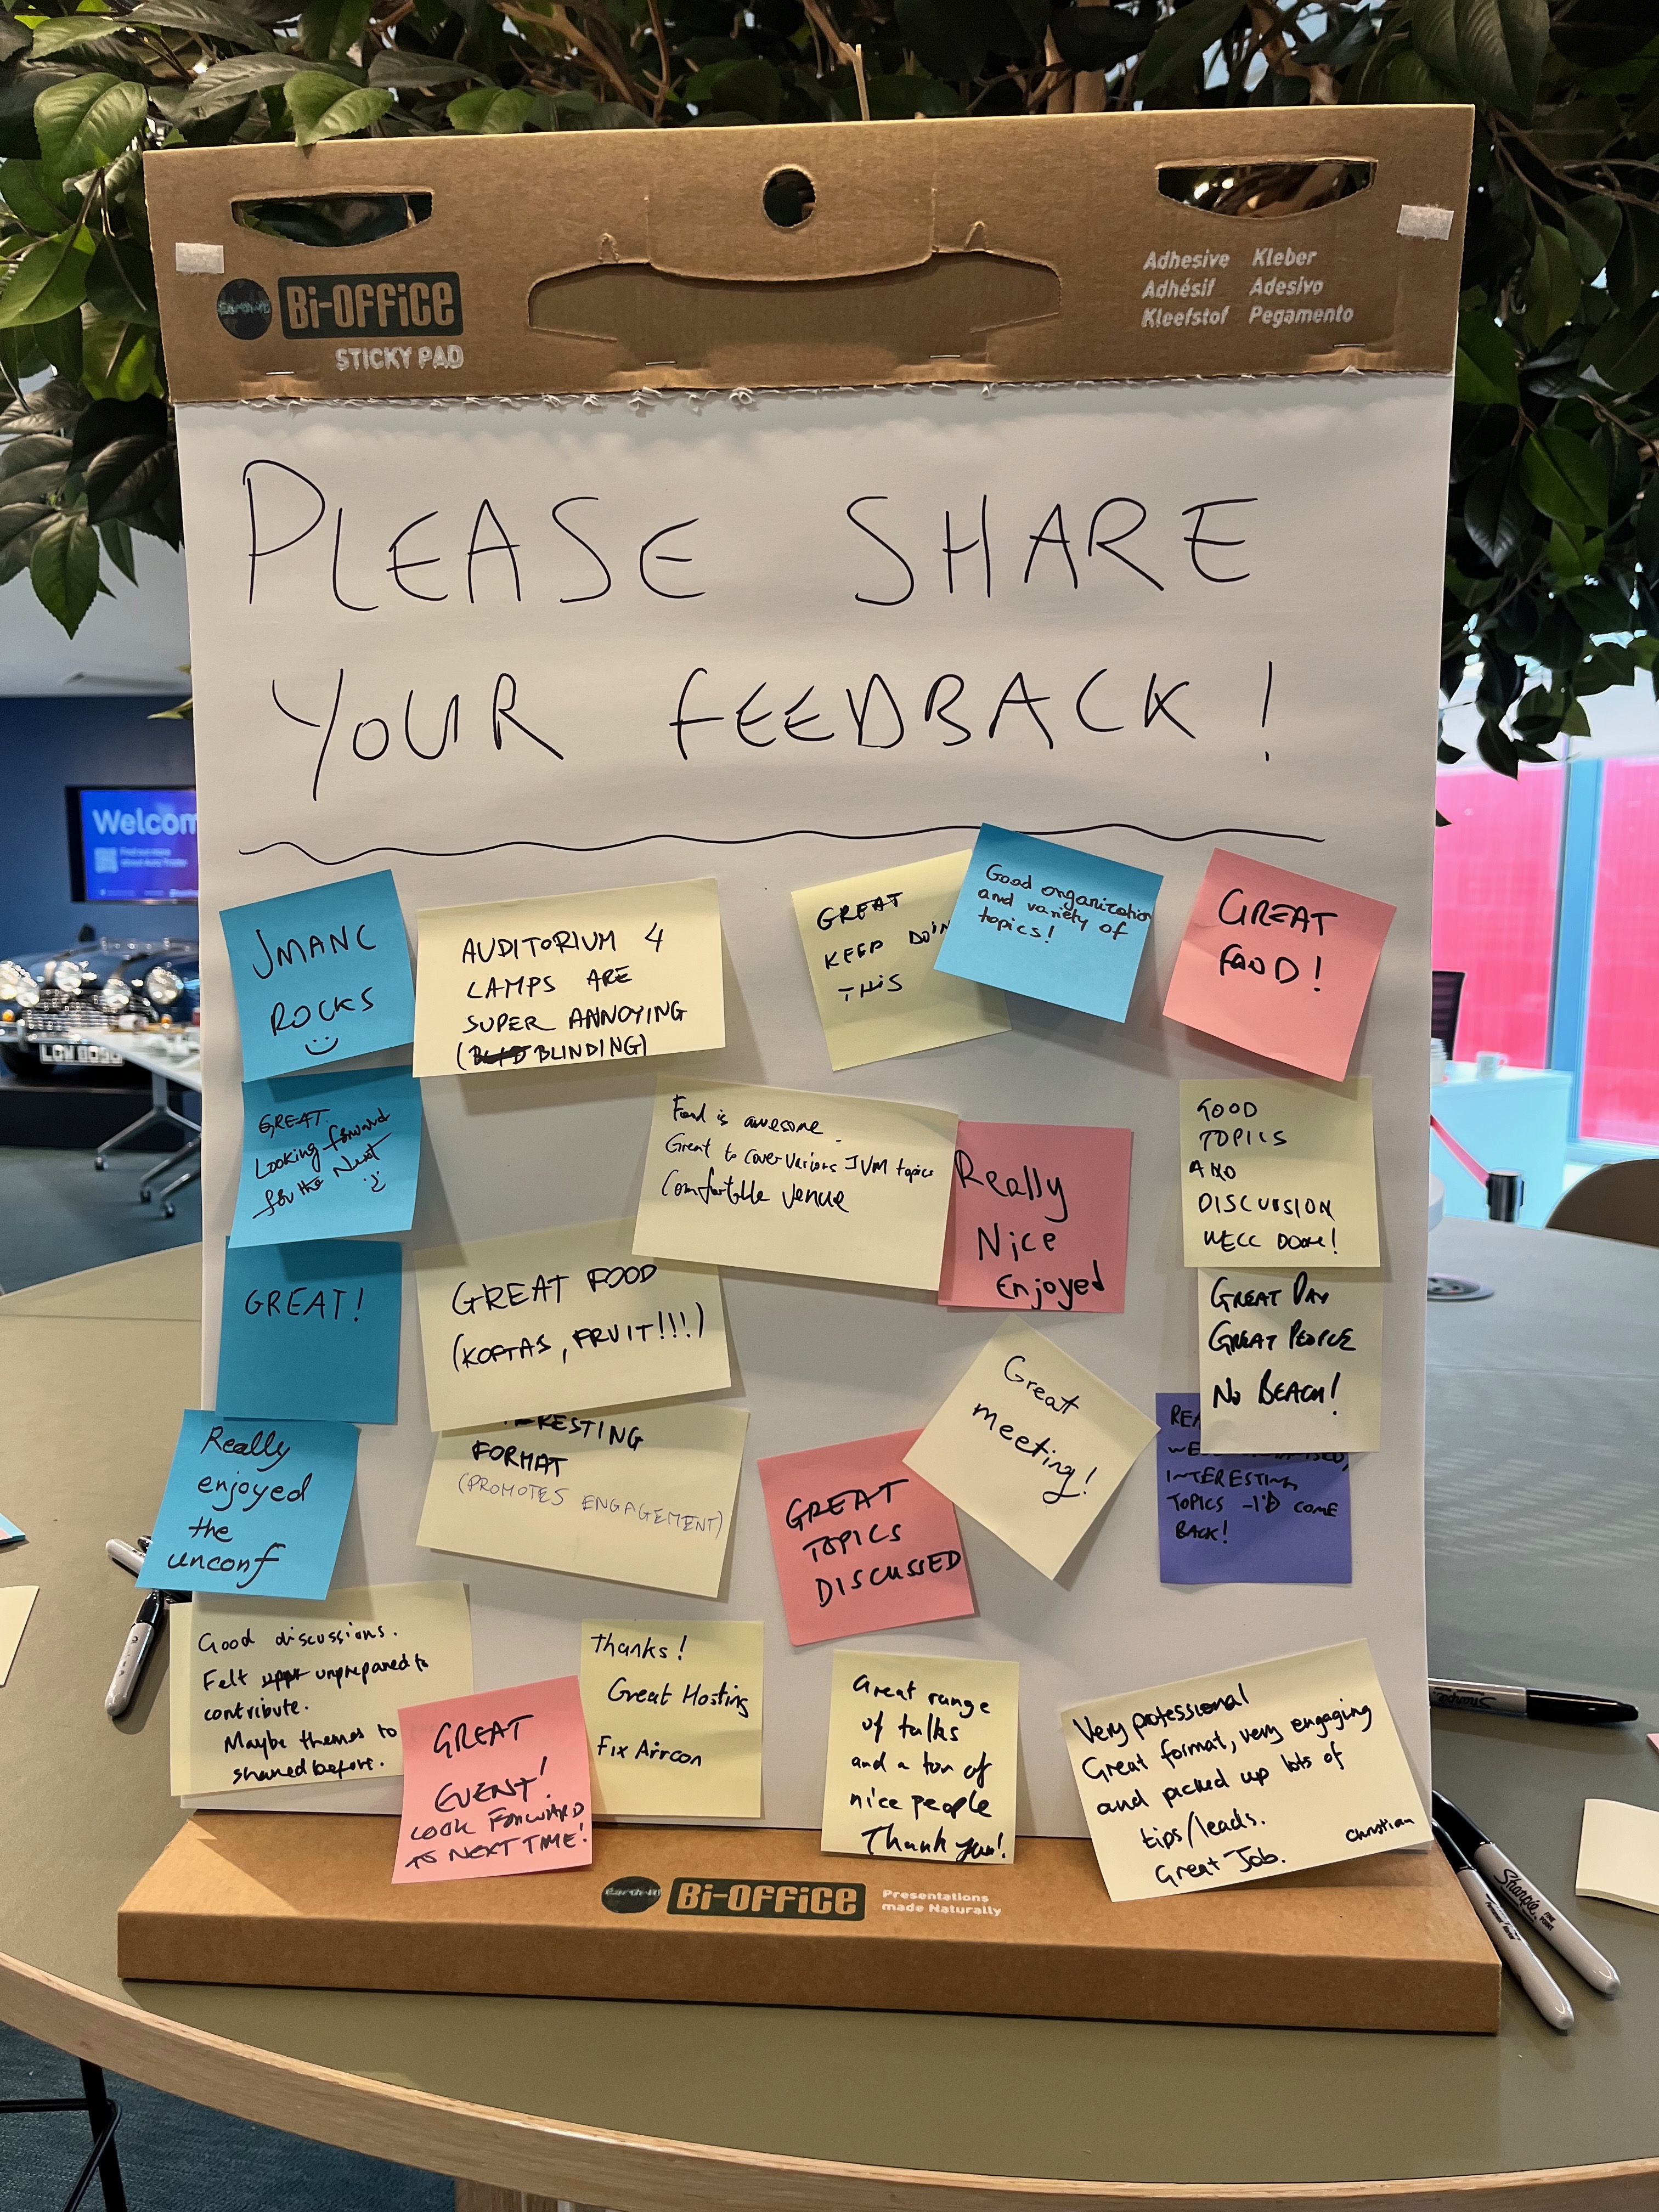 Bi-OFFiCE
STICKY PAD
Adhesive Kleber
Adhésif Adesivo
Kleefstof Pegamento
PLEASE SHARE
YOUR FEEDBACK!
Welcom
JMANC
ROCKS
AUDITORIUM 4
LAMPS ARE
SUPER ANNOYING
(BLINDING)
GREAT
KEEP DOIN
THIS
Good organization
and variety of
topics!
GREAT
FOOD!
GREAT.
Looking forward
for the Next
Food is awesome.
Great to cover various JVM topics
Comfortable venue
Really
Nice
Enjoyed
GOOD
TOPICS
AND
DISCUSSION
WELL DONE!
GREAT!
GREAT FOOD
(KOFTAS, FRUIT!!!)
GREAT DAY
GREAT PEOPLE
NO BEACH!
Great
meeting!
Really
enjoyed
the
unconf
ERESTING
FORMAT
(PROMOTES ENGAGEMENT)
GREAT
TOPICS
DISCUSSED
REA
WE
INTERESTING
TOPICS - I'D COME
BACK!
Good discussions.
Felt unprepared to
contribute.
Maybe themes to
shared before.
GREAT
EVENT!
LOOK FORWARD
TO NEXT TIME!
Thanks!
Great Hosting
Fix Aircon
Great range
of talks
and a ton of
nice people
Thank you!
Very professional
Great format, very engaging
and picked up lots of
tips/leads.
Great Job.
Christian
Bi-OFFiCE
Presentations
made Naturally
Sharpie
Sharpie